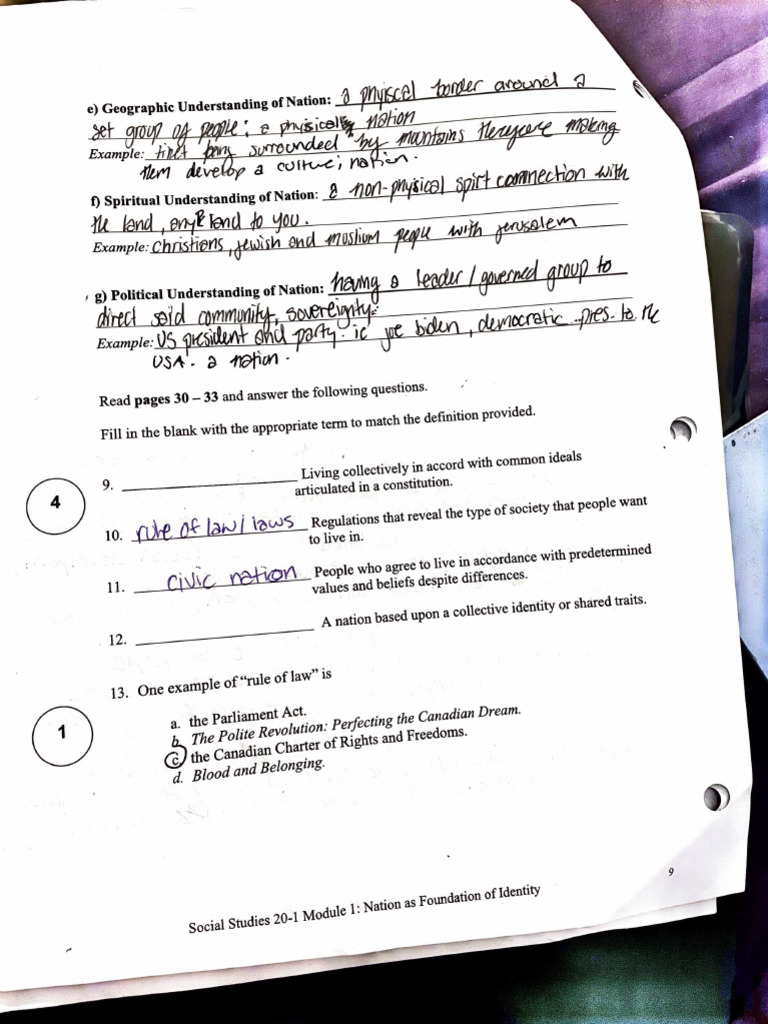 e) Geographic Understanding of Nation: a phyiscal border around a
set group of people; a physically nation
Example: tibet being surrounded by muntains therefore making
them develop a culture; nation.
f) Spiritual Understanding of Nation: a non-physical spirt connection with
the land, any land to you.
Example: christians, jewish and muslium people with jerusalem
g) Political Understanding of Nation: having a leader/governed group to
direct said community, sovereignty.
Example: US president and party. ie joe biden, democratic pres. to the
USA. a nation.
Read pages 30 – 33 and answer the following questions.
Fill in the blank with the appropriate term to match the definition provided.
4
9. Living collectively in accord with common ideals
articulated in a constitution.
10. rule of law/laws Regulations that reveal the type of society that people want
to live in.
11. civic nation People who agree to live in accordance with predetermined
values and beliefs despite differences.
12. A nation based upon a collective identity or shared traits.
1
13. One example of “rule of law” is
a. the Parliament Act.
b. The Polite Revolution: Perfecting the Canadian Dream.
c. the Canadian Charter of Rights and Freedoms.
d. Blood and Belonging.
9
Social Studies 20-1 Module 1: Nation as Foundation of Identity